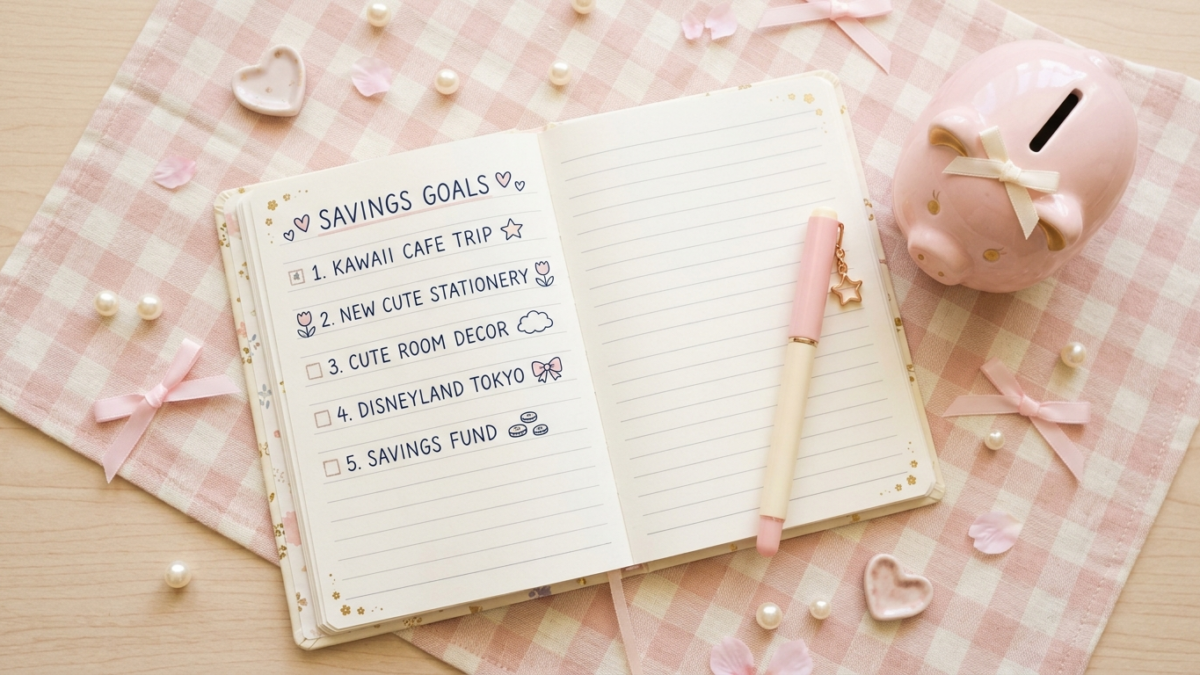 SAVINGS GOALS
1. KAWAII CAFE TRIP
2. NEW CUTE STATIONERY
3. CUTE ROOM DECOR
4. DISNEYLAND TOKYO
5. SAVINGS FUND